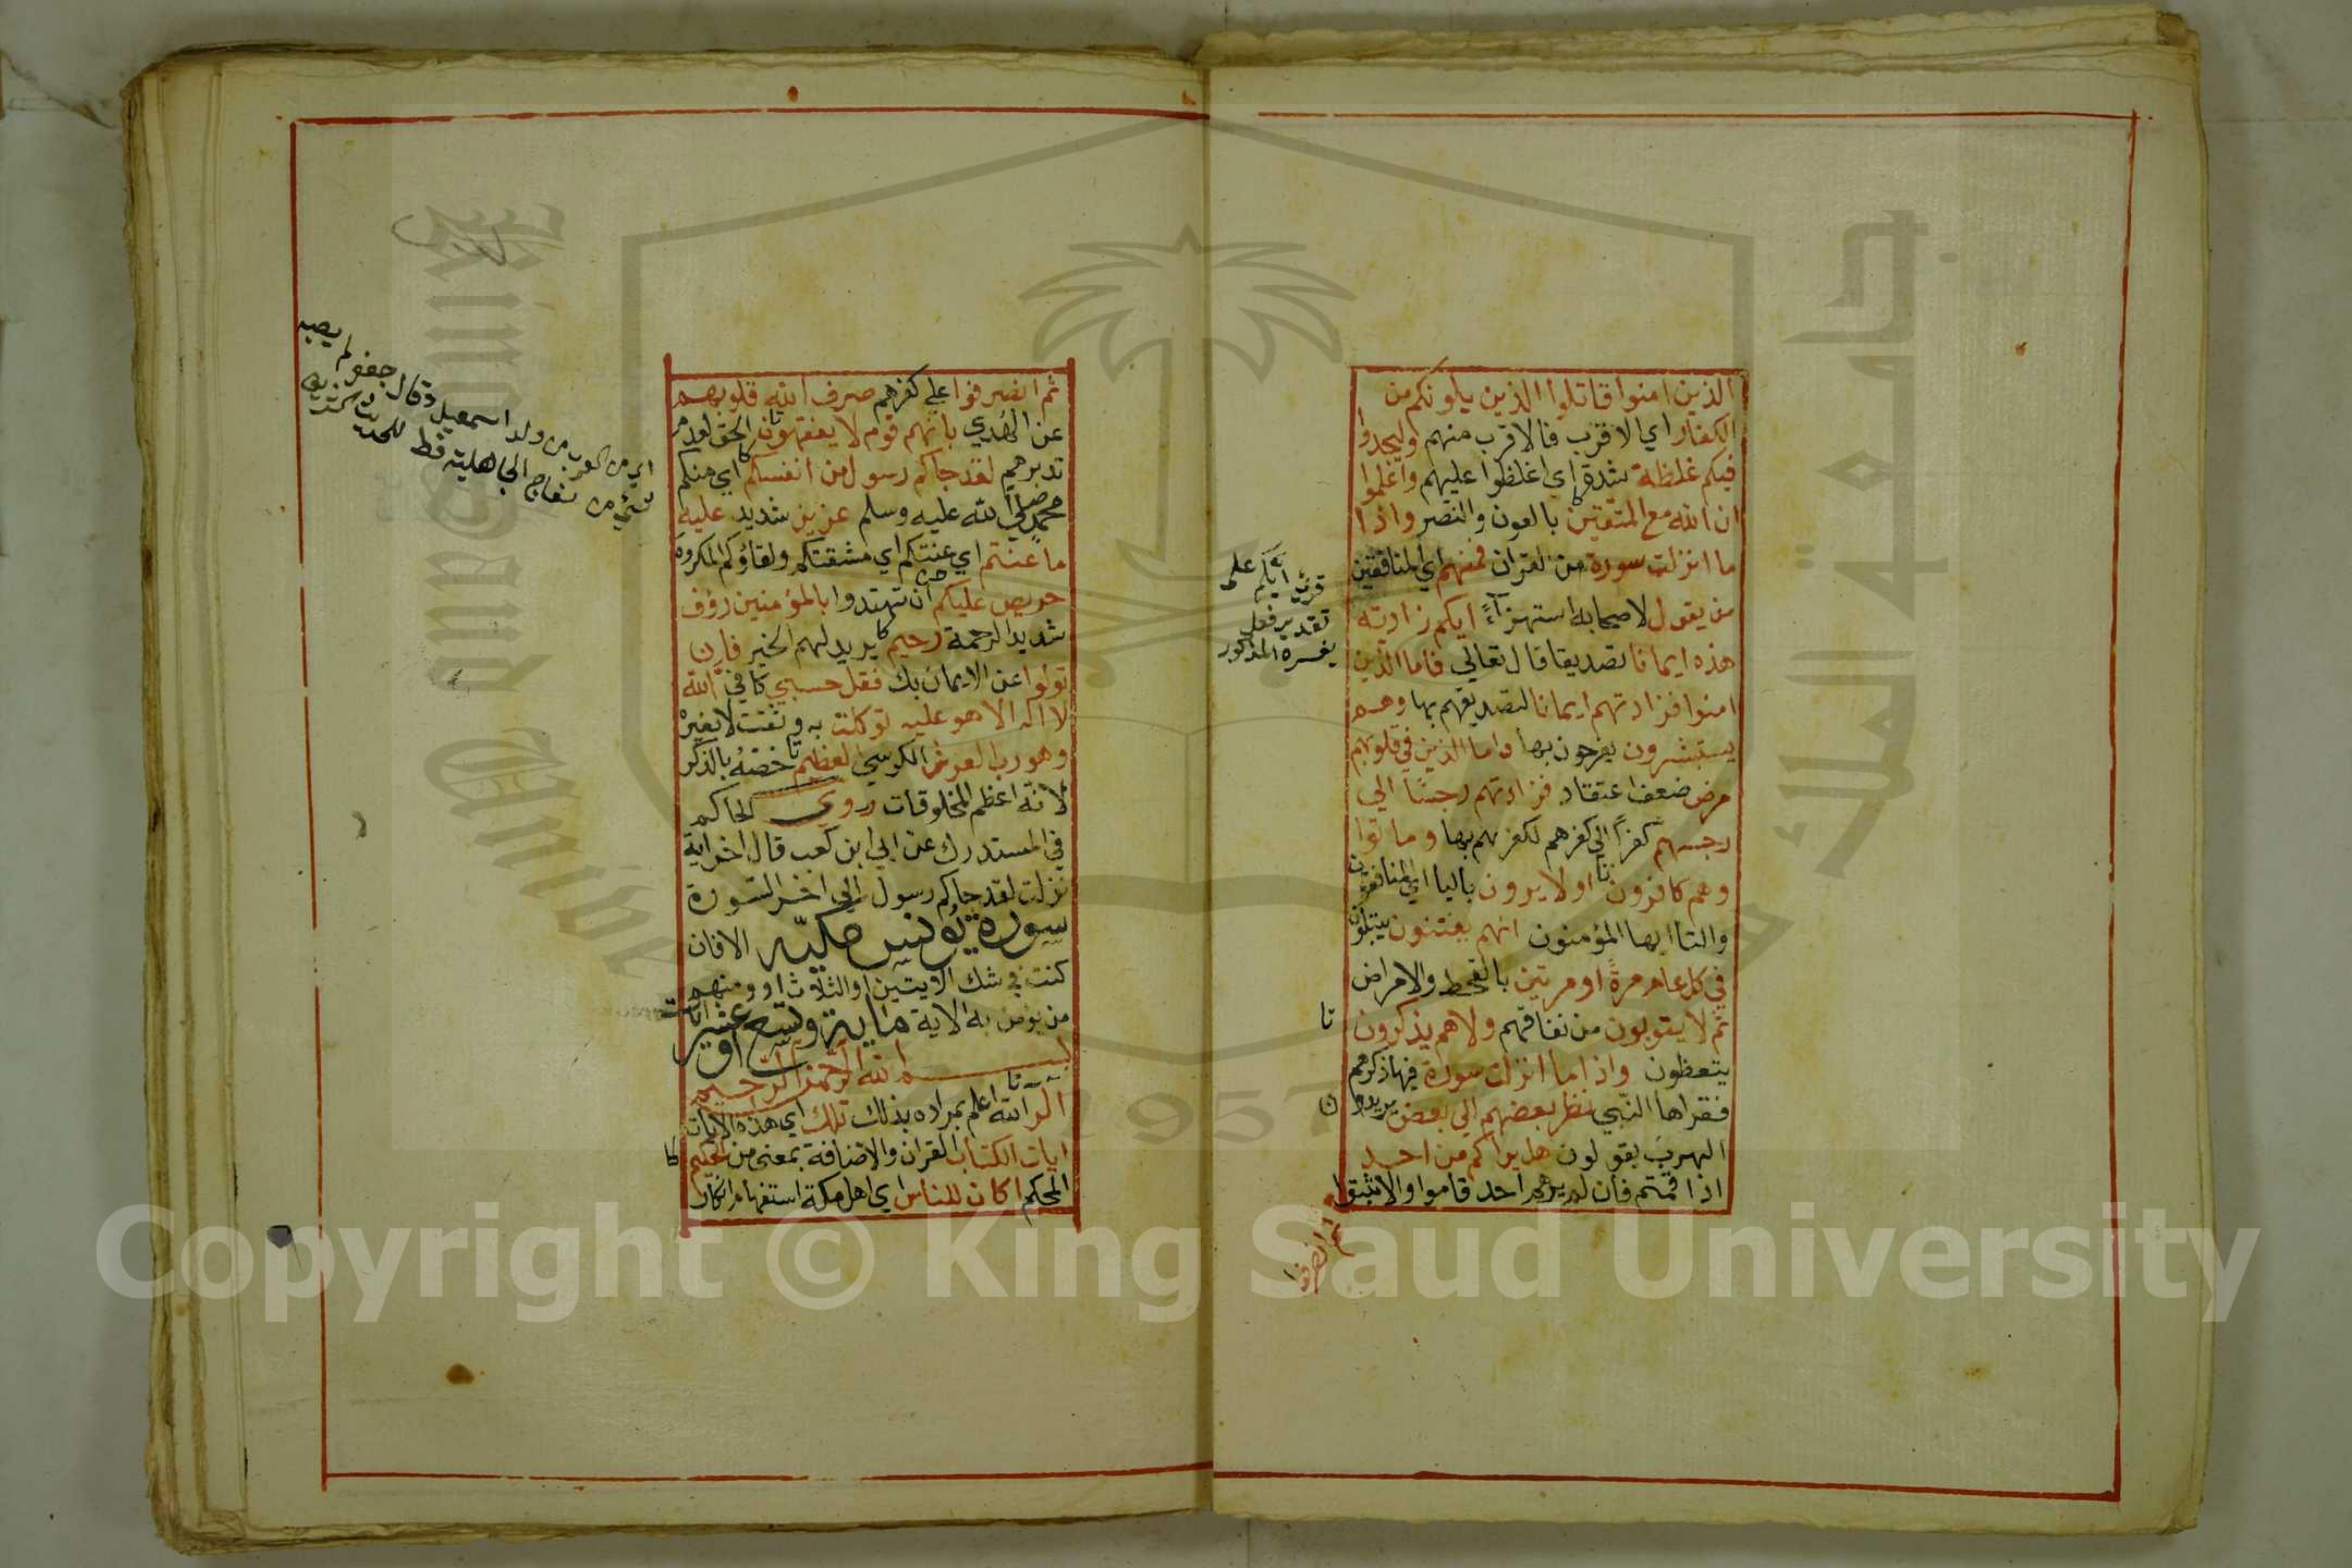 الذين امنوا قاتلوا الذين يلونكم من
الكفار اي الاقرب فالاقرب منهم وليجدوا
فيكم غلظة شدة اي اغلظوا عليهم واعلموا
ان الله مع المتقين بالعون والنصر واذا
ما انزلت سورة من القران فمنهم اي المنافقين
من يقول لاصحابه استهزآءً ايكم زادته
هذه ايمانا تصديقا قال تعالي فاما الذين
امنوا فزادتهم ايمانا لتصديقهم بها وهم
يستبشرون يفرحون بها واما الذين في قلوبهم
مرض ضعف اعتقاد فزادتهم رجسًا الي
رجسهم كفرًا الي كفرهم لكفرهم بها وماتوا
وهم كافرون اولا يرون باليا اي المنافقون
والتا ايها المؤمنون انهم يفتنون يبتلون
في كل عام مرةً او مرتين بالقحط والامراض
ثم لا يتوبون من نفاقهم ولا هم يذكرون
يتعظون واذا ما انزلت سورة فيها ذكرهم
فقراها النبي نظر بعضهم الي بعض يريدون
الهرب يقولون هل يراكم من احد
اذا قمتم فان لم يرهم احد قاموا والا ثبتوا
ثم انصرفوا
قرئ ايكم على
تقدير فعل
يفسره المذكور
ثم انصرفوا علي كفرهم صرف الله قلوبهم
عن الهدي بانهم قوم لا يفقهون الحق لعدم
تدبرهم لقد جاكم رسول من انفسكم اي منكم
محمد صلي الله عليه وسلم عزيز شديد عليه
ما عنتم اي عنتكم اي مشقتكم ولقاؤكم المكروه
حريص عليكم ان تهتدوا بالمؤمنين رؤف
شديد الرحمة رحيم يريد لهم الخير فان
تولوا عن الايمان بك فقل حسبي كافيّ الله
لا اله الا هو عليه توكلت به وثقت لا بغيره
وهو رب العرش الكرسي العظيم خصّهُ بالذكر
لانه اعظم المخلوقات وروي الحاكم
في المستدرك عن ابي ابن كعب قال اخر اية
نزلت لقد جاكم رسول الي اخر السورة
سورة يونس مكيّه الا فان
كنت في شك الايتين او الثلاث او ومنهم
من يؤمن به الاية ماية وتسع او عشر ايات
بسم الله الرحمن الرحيم
الر الله اعلم بمراده بذلك تلك اي هذه الايات
ايات الكتاب القران والاضافة بمعنى من الحكيم
المحكم اكان للناس اي اهل مكة استفهام انكار
اي من العرب من ولد اسمعيل وقال جعفر لم يصبه
شيء من سفاح الجاهلية قط
Copyright © King Saud University
جامعة الملك
1957